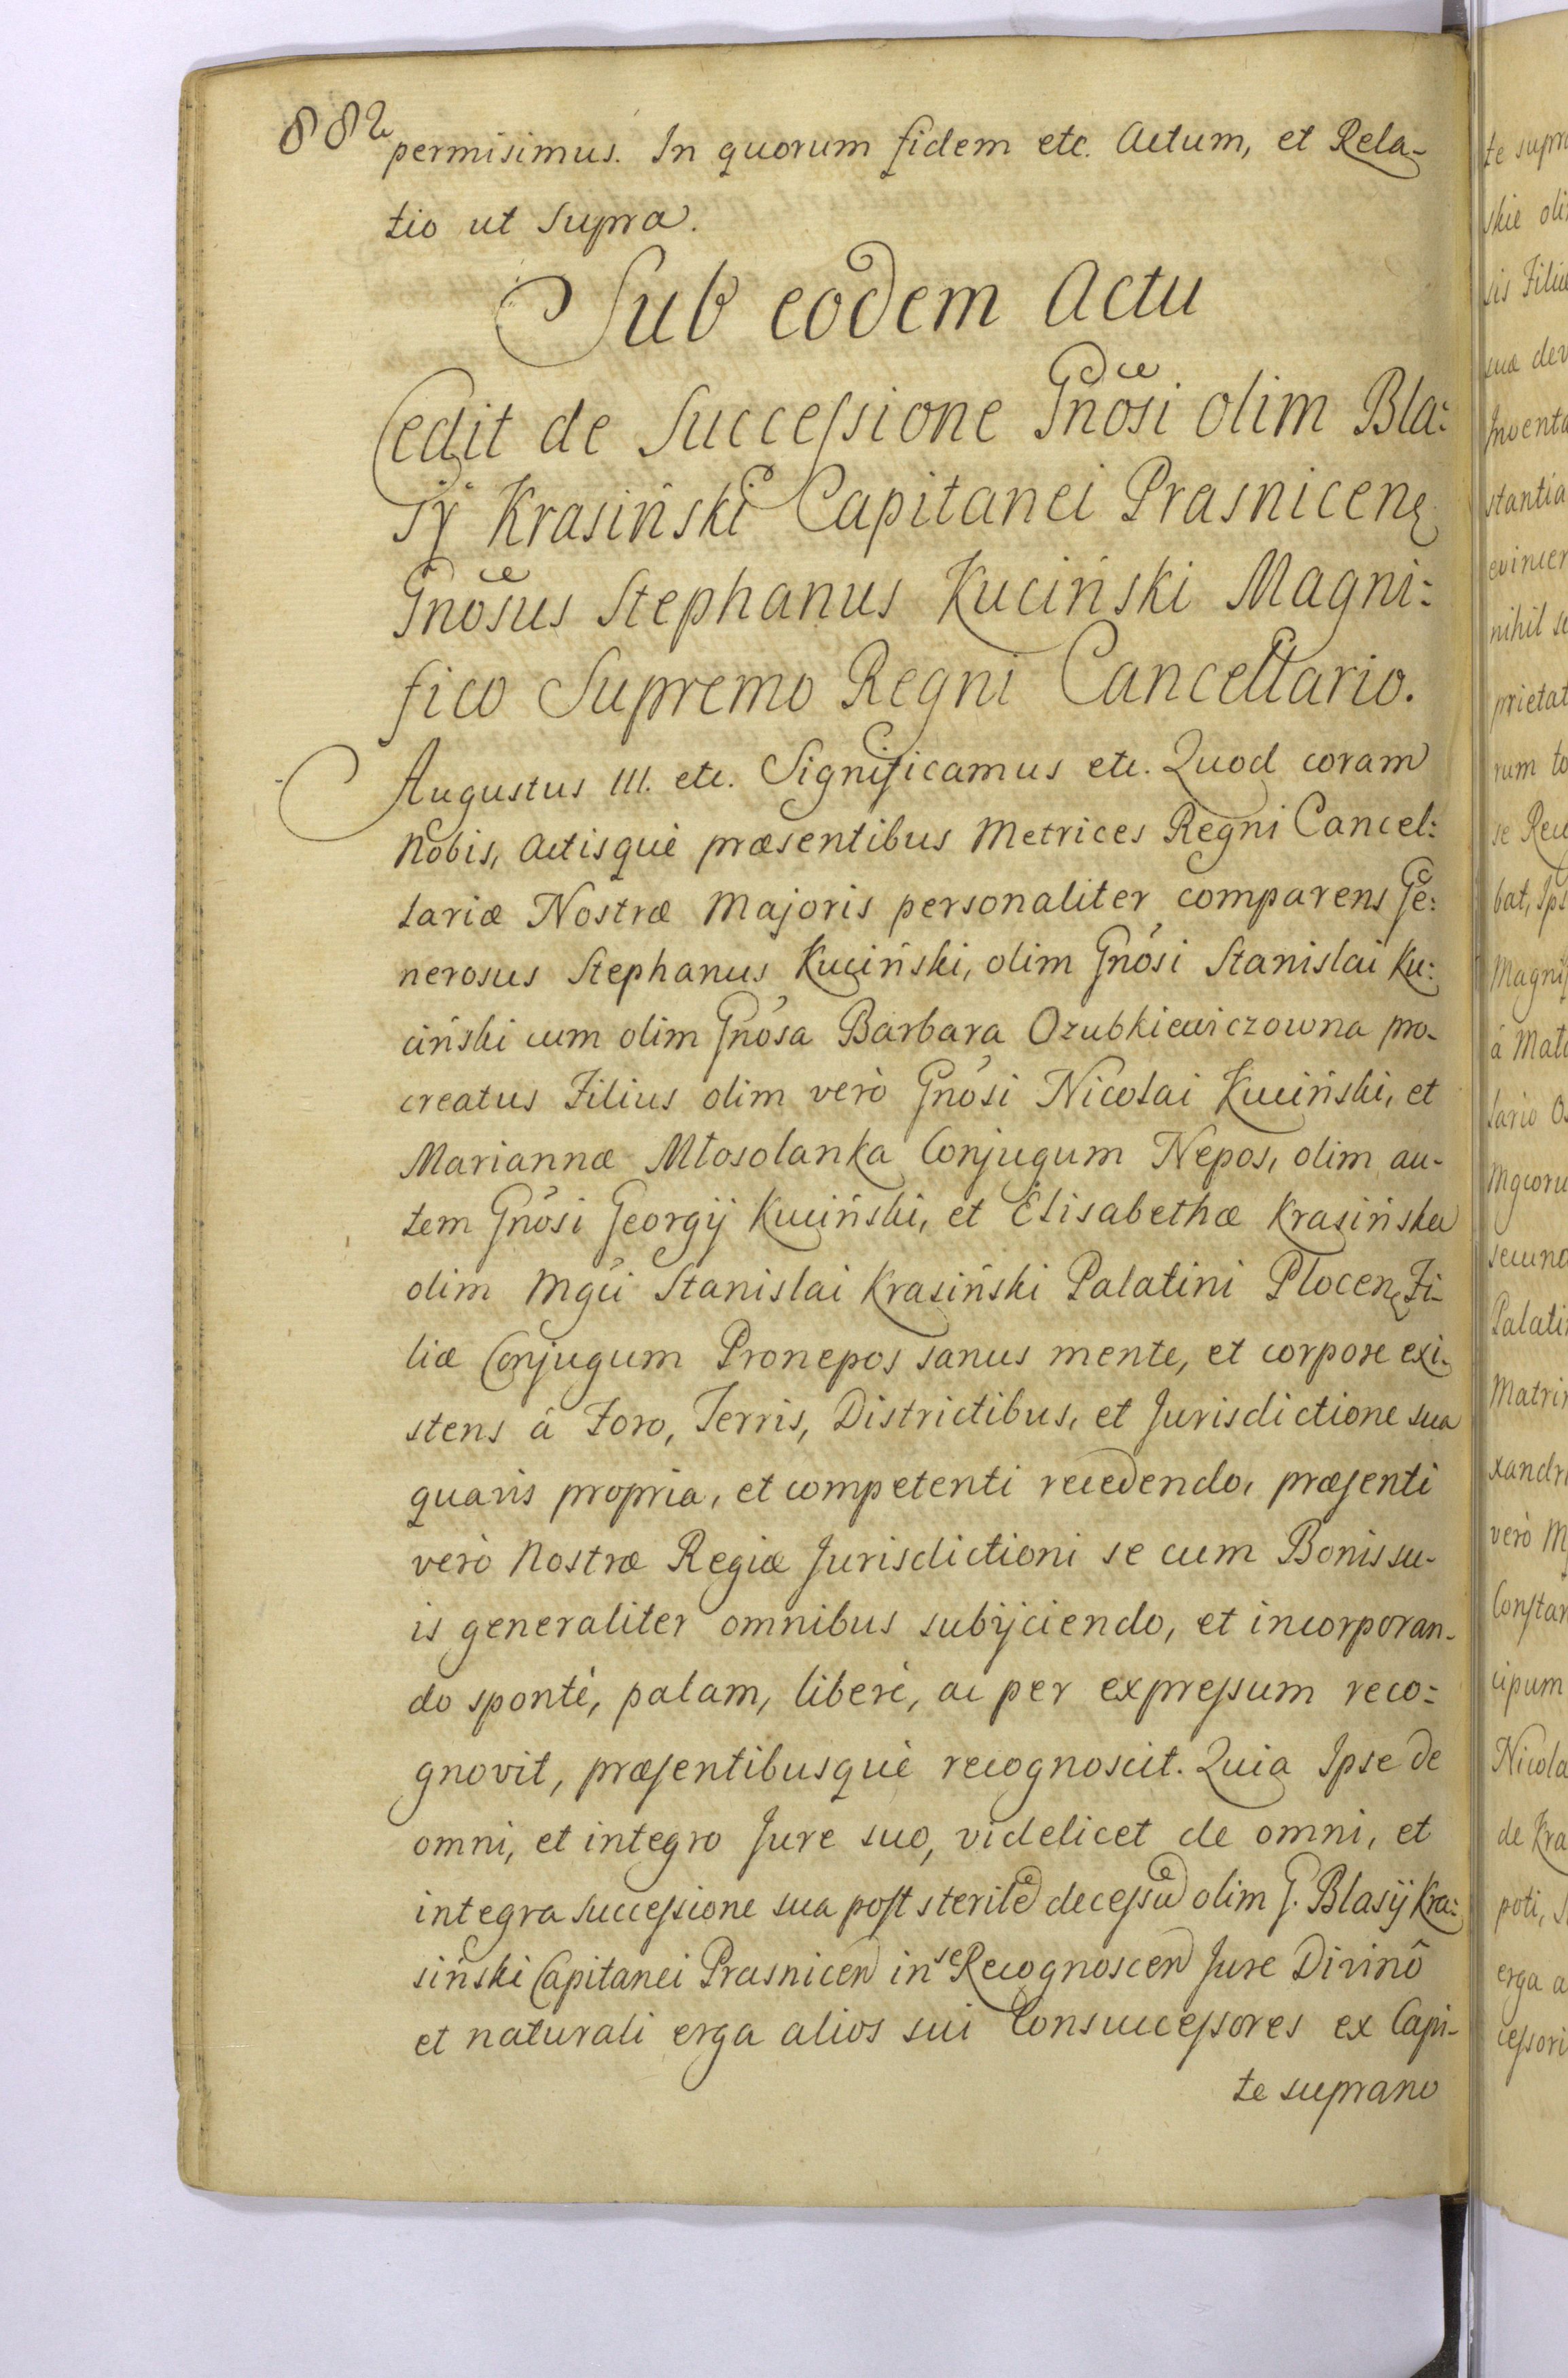 882
permisimus. In quorum fidem etc. Actum, et Rela-
tio ut supra.
Sub eodem Actu
Cedit de Successione Gnõsi olim Bla:
sÿ Krasiński Capitanei Prasnicen
Gnõsus Stephanus Kuciński Magni:
fico Supremo Regni Cancellario.
Augustus III. etc. Significamus etc. Quod coram
Nobis, Actisquè præsentibus Metrices Regni Cancel:
lariæ Nostræ Majoris personaliter comparens Ge:
nerosus Stephanus Kuciński, olim Gnõsi Stanislai Ku:
ciński cum olim Gnõsa Barbara Ozubkiewiczowna pro-
creatus Filius olim verò Gnõsi Nicolai Kuciński, et
Mariannæ Młosolanka Conjugum Nepos, olim au-
tem Gnõsi Georgij Kuciński, et Elisabethæ Krasińska
olim Mgci Stanislai Krasiński Palatini Plocen Fi-
liæ Conjugum Pronepos sanus mente, et corpore exi-
stens à Foro, Terris, Districtibus, et Jurisdictione sua
quavis propria, et competenti recedendo, præsenti
verò Nostræ Regiæ Jurisdictioni se cum Bonis su-
is generaliter omnibus subijciendo, et incorporan-
do spontè, palam, liberè, ac per expressum reco-
gnovit, præsentibusquè recognoscit. Quia Ipse de
omni, et integro Jure suo, videlicet de omni, et
integra successione sua post sterile decessu olim G. Blasij Kra:
siński Capitanei Prasnicen in se Recognoscen Jure Divinô
et naturali erga alios sui Consuccessores ex Capi-
te suprano
te supra
skie oli
sis Filiæ
suæ dev
Inventa
stantia
evincer
nihil se
prietat
rum to
se Recu
bat, Ips
Magnif
à Mato
lario
Mgcoru
secund
Palati
Matri
xandr
verò M
Constan
cipum
Nicola
de Kra
poti, s
erga a
cessori